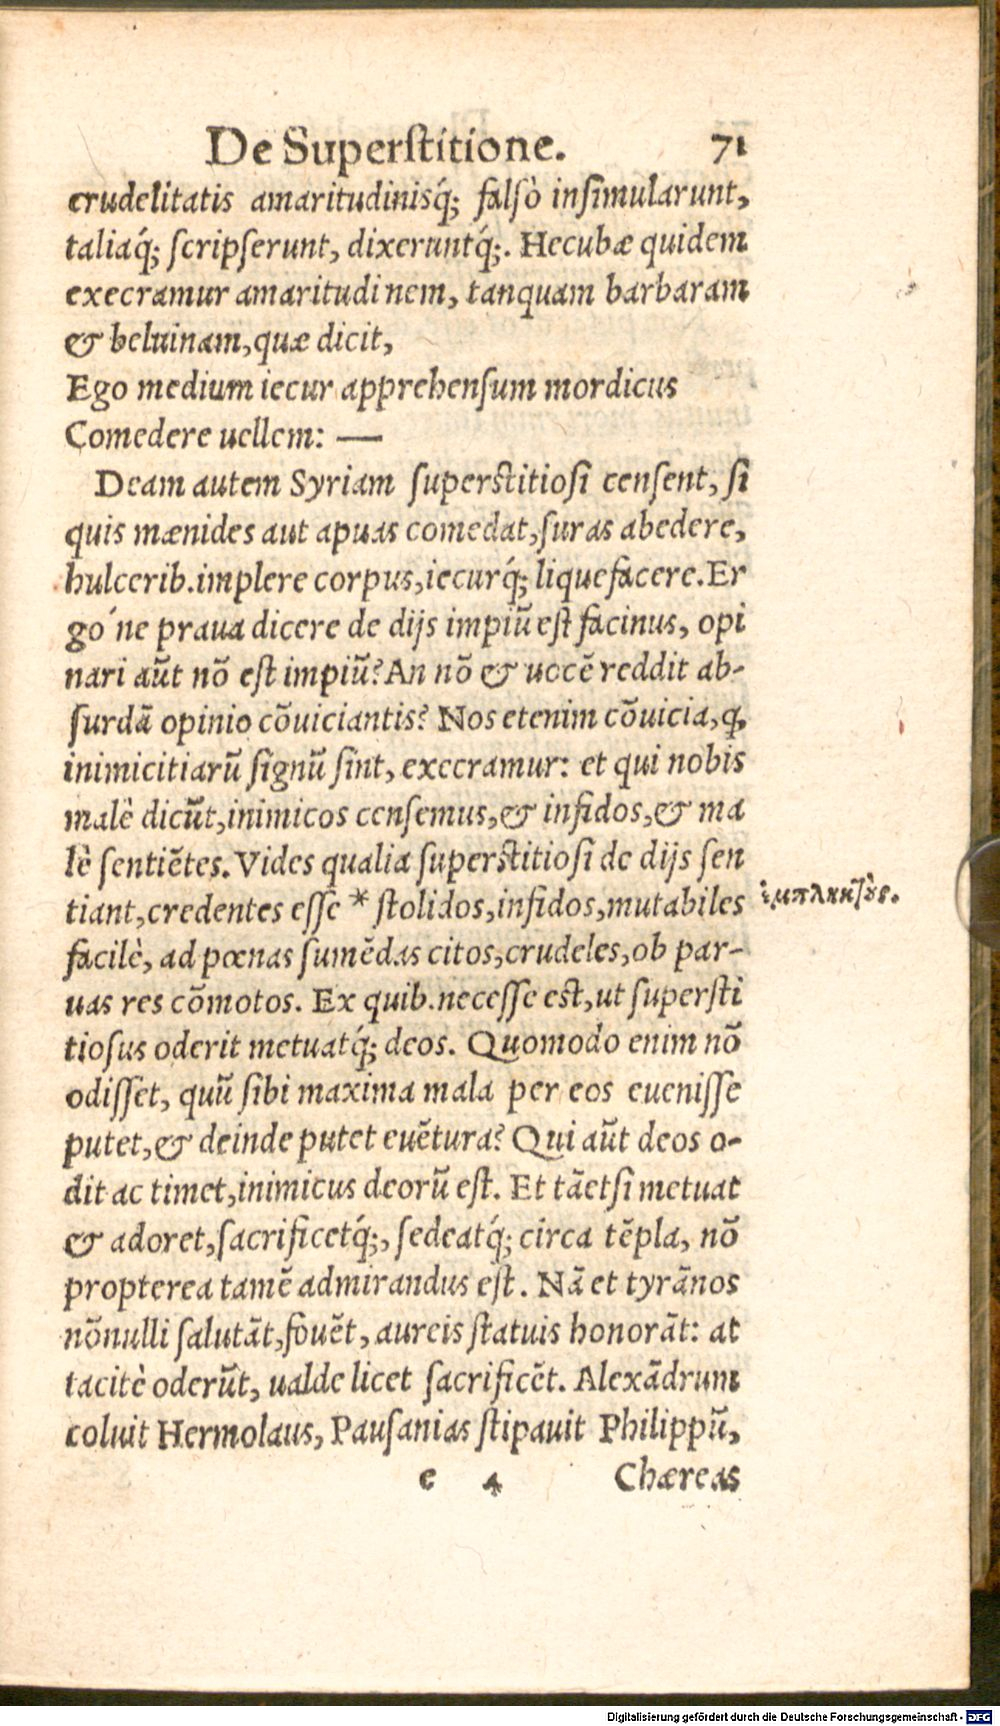 De Superstitione. 71
crudelitatis amaritudinisq́; falsò insimularunt,
taliaq́; scripserunt, dixeruntq́;. Hecubæ quidem
execramur amaritudinem, tanquam barbaram
& beluinam, quæ dicit,
Ego medium iecur apprehensum mordicus
Comedere uellem: —
Deam autem Syriam superstitiosi censent, si
quis mænides aut apuas comedat, suras abedere,
hulcerib. implere corpus, iecurq́; liquefacere. Er
gó ne praua dicere de dijs impiũ est facinus, opi
nari aũt nõ est impiũ? An nõ & uocẽ reddit ab-
surdã opinio cõuiciantis? Nos etenim cõuicia, q,
inimicitiarũ signũ sint, execramur: et qui nobis
malè dicũt, inimicos censemus, & infidos, & ma
lè sentiẽtes. Vides qualia superstitiosi de dijs sen
tiant, credentes esse * stolidos, infidos, mutabiles
ἐμπλήκτους.
facilè, ad pœnas sumẽdas citos, crudeles, ob par-
uas res cõmotos. Ex quib. necesse est, ut supersti
tiosus oderit metuatq́; deos. Quomodo enim nõ
odisset, quũ sibi maxima mala per eos euenisse
putet, & deinde putet euẽtura? Qui aũt deos o-
dit ac timet, inimicus deorũ est. Et tãetsi metuat
& adoret, sacrificetq́;, sedeatq́; circa tẽpla, nõ
propterea tamẽ admirandus est. Nã et tyrãnos
nõnulli salutãt, fouẽt, aureis statuis honorãt: at
tacitè oderũt, ualde licet sacrificẽt. Alexãdrum
coluit Hermolaus, Pausanias stipauit Philippũ,
e 4 Chæreas
Digitalisierung gefördert durch die Deutsche Forschungsgemeinschaft - DFG